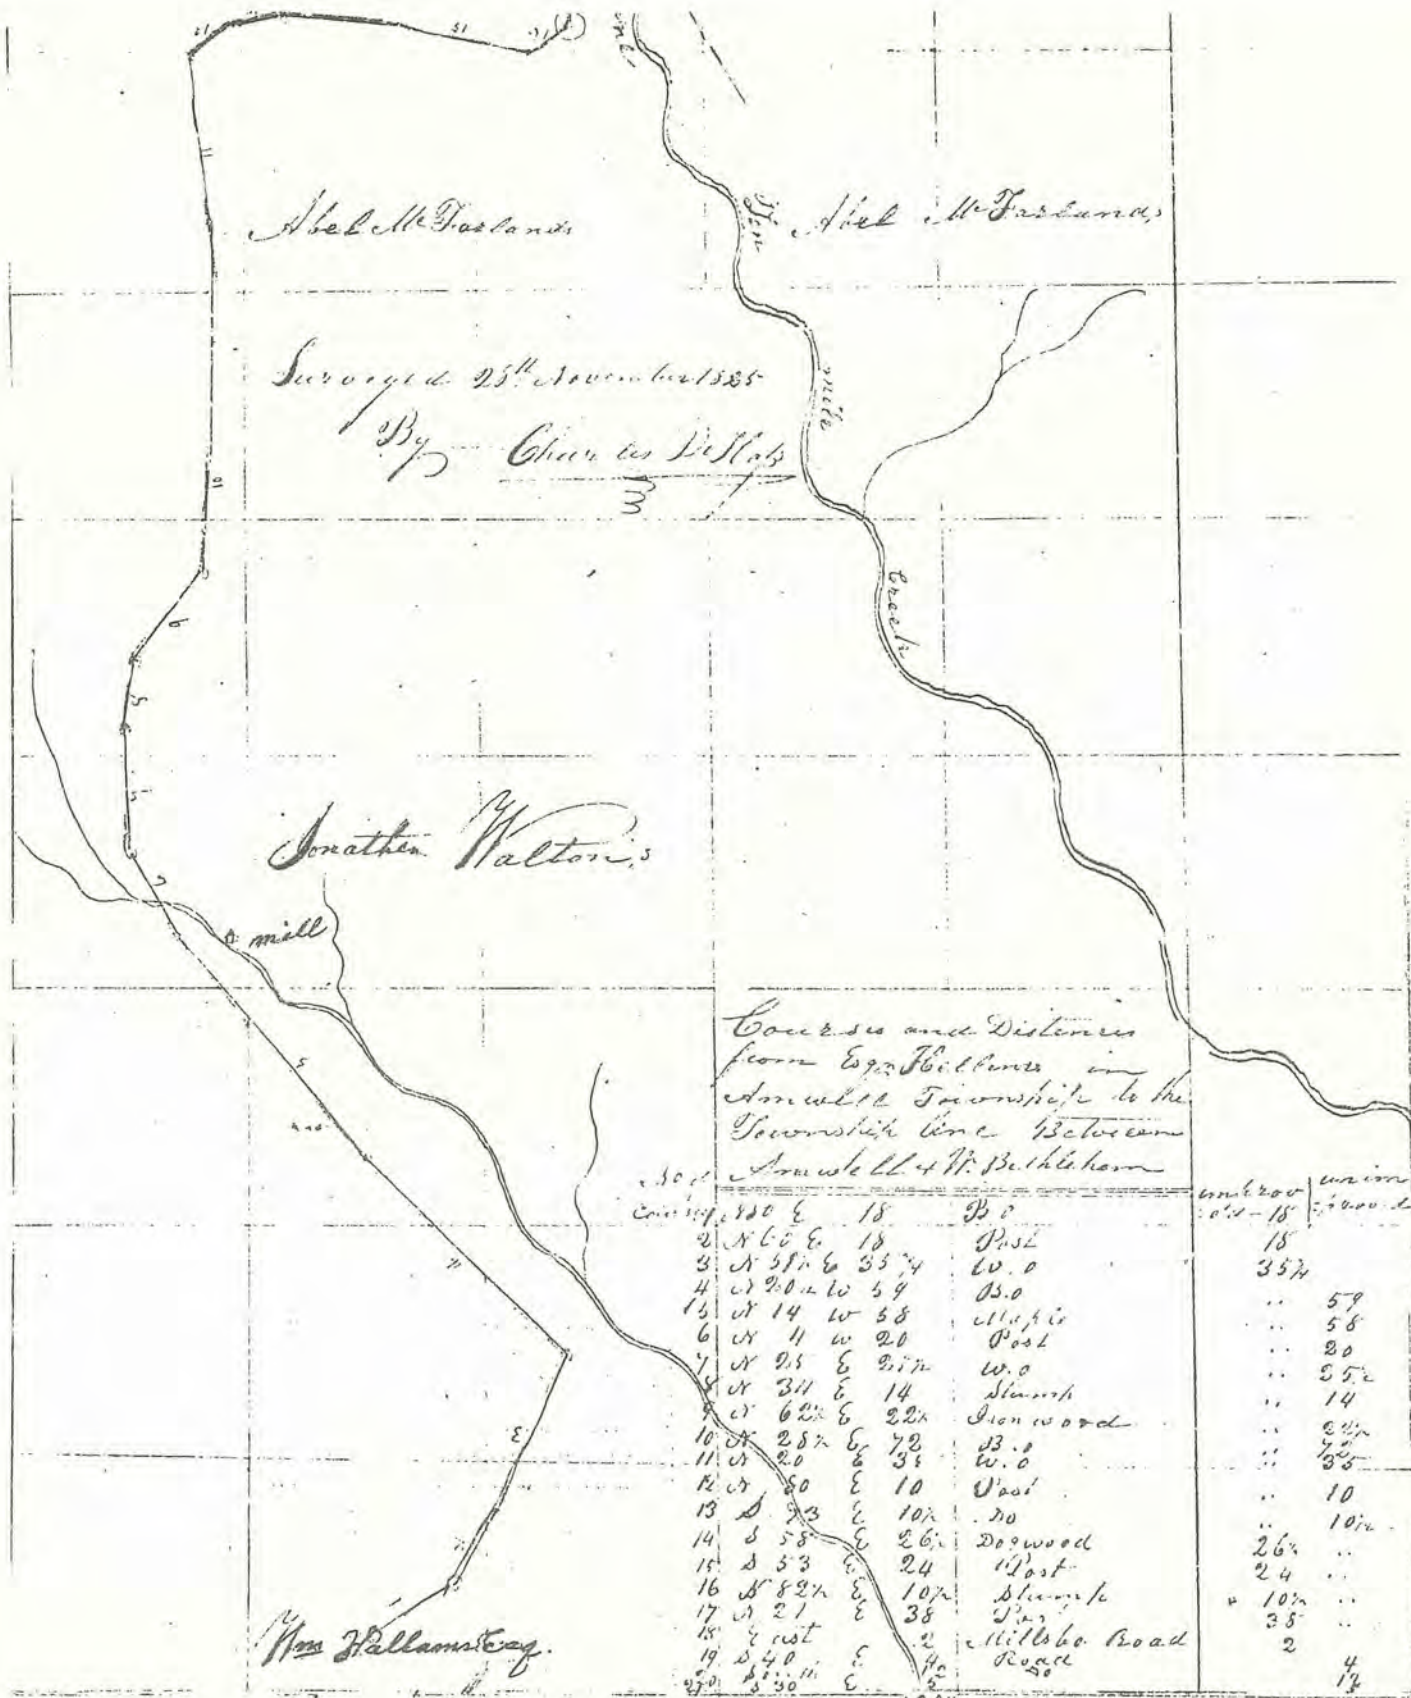 Abel McFarlands
Ten mile Creek
Abel McFarlands
Surveyed 25th November 1835
By Charles DeHaas
Jonathan Walton's
mill
Courses and Distances
from Esqr in
Amwell Township to the
Township line Between
Amwell & W. Bethlehem
No of Courses improved unimproved
1 E 18 B.O 18
2 N 60 E 18 Post 18
3 E 35 W.O 35
4 W 59 B.O .. 59
5 N 14 W 58 Maple .. 58
6 N 11 W 20 Post .. 20
7 N 25 E 25½ W.O .. 25½
8 N 34 E 14 Stump .. 14
9 N 62½ E 22½ Ironwood .. 22½
10 N 28½ E 72 B.O .. 72
11 N 20 E 35 W.O .. 35
12 N 80 E 10 Post .. 10
13 S E 10½ Do .. 10½
14 S 58 E 26½ Dogwood 26½ ..
15 S 53 E 24 Post 24 ..
16 N 82½ E 10½ Stump 10½ ..
17 N 21 E 38 Post 38 ..
18 East 2 Millsbo Road 2
19 S 40 E 4 Road 4
20 S 30 E Do
Wm Hallams Esq.